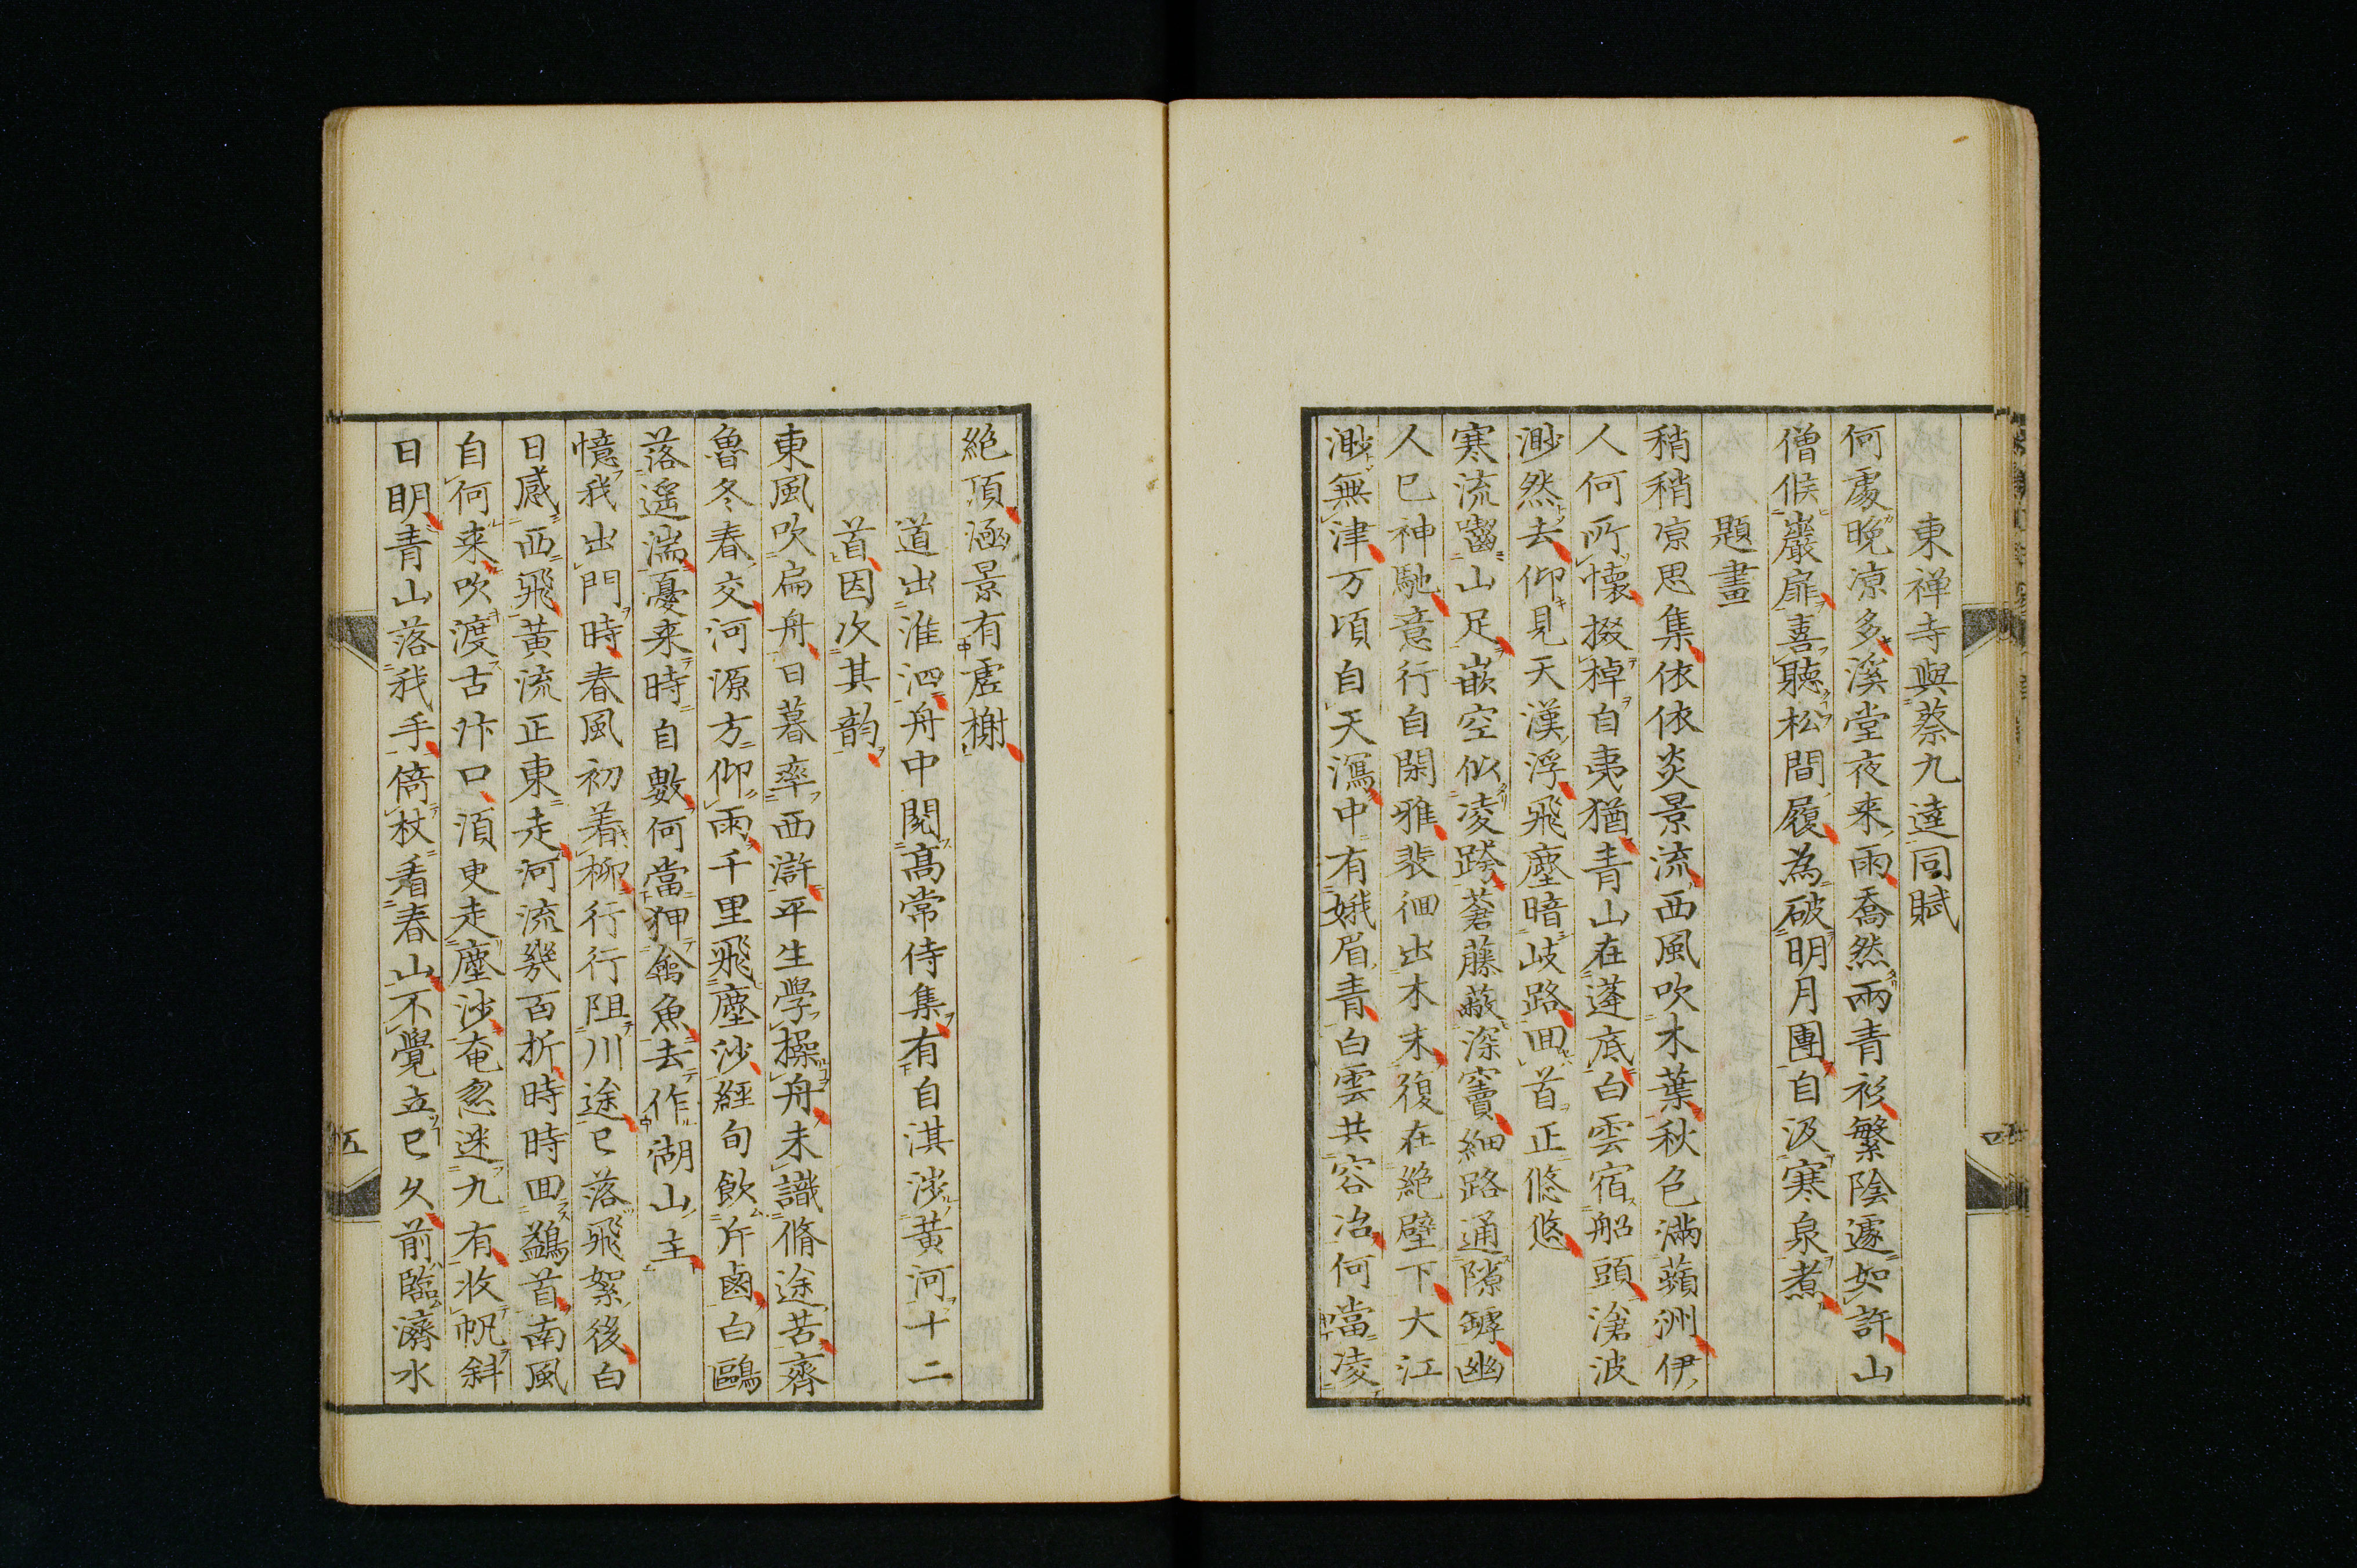 東禅寺與蔡九逵同賦
何處晚凉多溪堂夜来雨喬然兩青衫繁陰遽如許山
僧候巖扉喜聽松間履為破明月團自汲寒泉煮
題畫
稍稍凉思集依依炎景流西風吹木葉秋色滿蘋洲伊
人何所懷掇棹自夷猶青山在蓬底白雲宿船頭滄波
渺然去仰見天漢浮飛塵暗岐路回首正悠悠
寒流嚙山足嵌空似凌跨蒼藤蔽深竇細路通隙罅幽
人已神馳意行自閑雅裴徊出木末復在絶壁下大江
渺無津万頃自天瀉中有娥眉青白雲共容冶何當凌
絶頂涵景有虗榭
道出淮泗舟中閱髙常侍集有自淇涉黃河十二
首因次其韵
東風吹扁舟日暮率西滸平生學操舟未識脩途苦齊
魯冬春交河源方仰雨千里飛塵沙經旬飲斥鹵白鷗
落遥湍憂来時自數何當狎禽魚去作湖山主
憶我出門時春風初着柳行行阻川途已落飛絮後白
日感西飛黃流正東走河流幾百折時時回鷁首南風
自何来吹渡古汴口湏更走塵沙奄忽迷九有收帆斜
日明青山落我手倚杖看春山不覺立已久前臨濟水
四
五